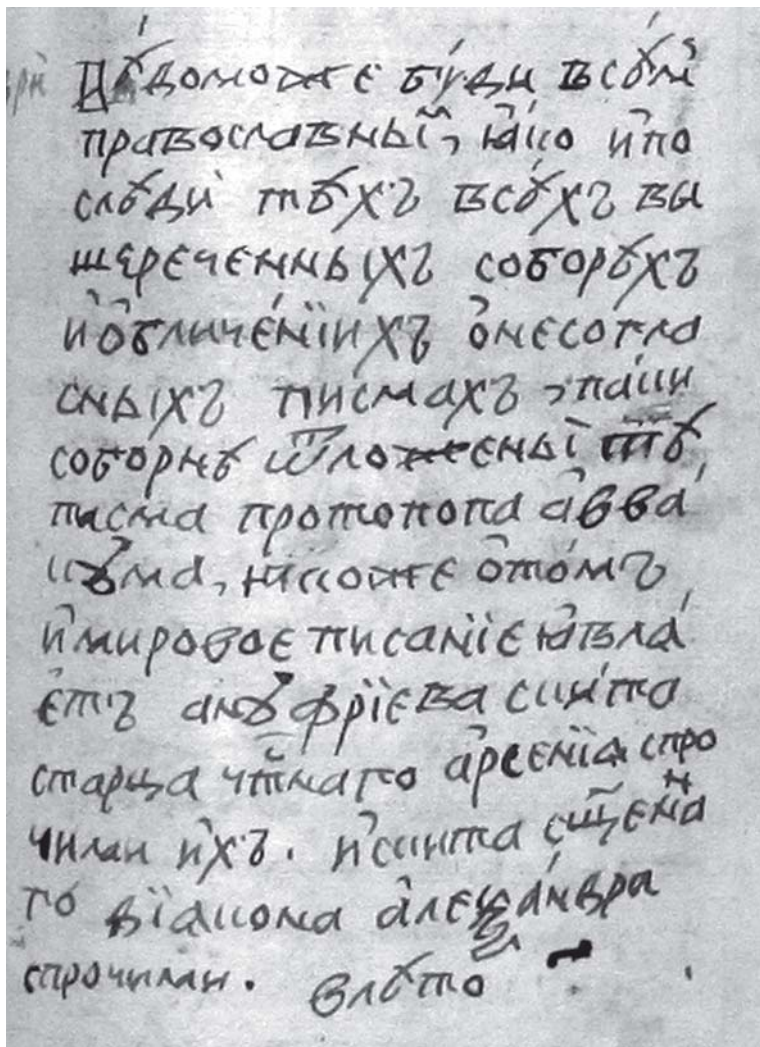 Вѣдоможе бу́ди всѣм
православны҆м, ꙗ҆ко и҆по
слѣди тѣхъ всѣхъ вы
шереченныхъ соборѣхъ
и҆ о҆бличе́нїи хъ о҆несогла
сныхъ писмахъ, паки
соборнѣ ѿложены тѣ
писма протопопа а҆вва
кꙋма, ꙗкоже о҆то́мъ
и҆мировое писанїе ꙗ҆вла́
етъ анꙋфрїева скита
старца чтнаго а҆рсенїа спро
чими и҆хъ. и҆скита сщ҃енна
го дїакона а҆леѯа́ндра
спрочими. влѣто